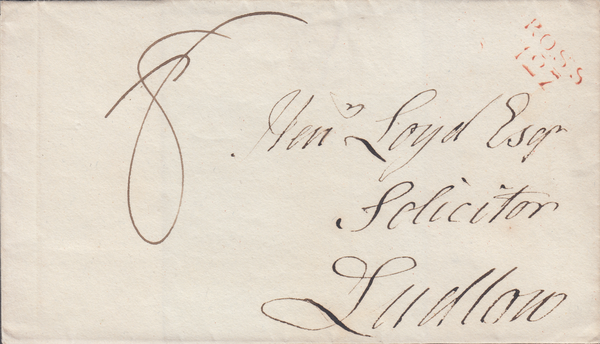 ROSS
127
8
Henʸ Loyd Esqr
Solicitor
Ludlow